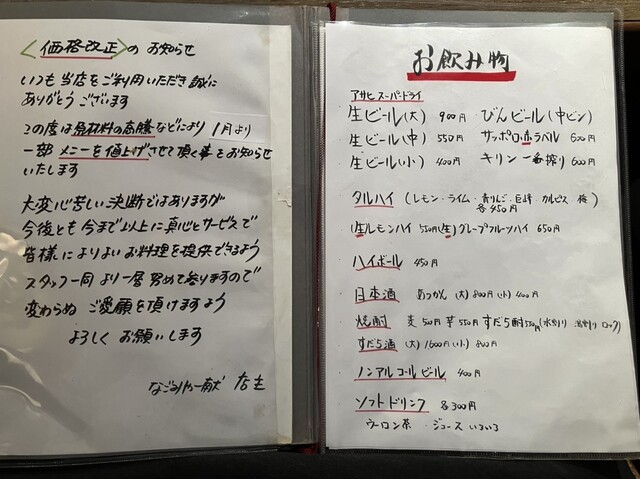 〈価格改正〉の お知らせ
いつも 当店を ご利用いただき 誠に
ありがとう ございます
この度は原材料の高騰などにより 1月より
一部 メニーを値上げさせて頂く事をお知らせ
いたします
大変心苦しい決断ではありますが
今後とも今まで以上に真心とサービスで
皆様によりよいお料理を提供できるよう
スタッフ一同 より一層 努めて参りますので
変わらぬ ご愛顧を頂けますよう
よろしく お願いします
店主
お飲み物
アサヒ スーパードライ
生ビール(大) 900円 びんビール(中ビン)
生ビール(中) 550円 サッポロ赤ラベル 600円
生ビール(小) 400円 キリン 一番搾り 600円
タルハイ (レモン・ライム・青りんご・巨峰・カルピス 梅)
各450円
(生)レモンハイ 550円 (生)グレープフルーツハイ 650円
ハイボール 450円
日本酒 あつかん (大)800円 (小)400円
焼酎 麦500円 芋550円 すだち酎550円(水割り お湯割り ロック)
すだち酒 (大)1600円 (小)800円
ノンアルコールビール 400円
ソフトドリンク 各300円
ウーロン茶 ・ジュース いろいろ